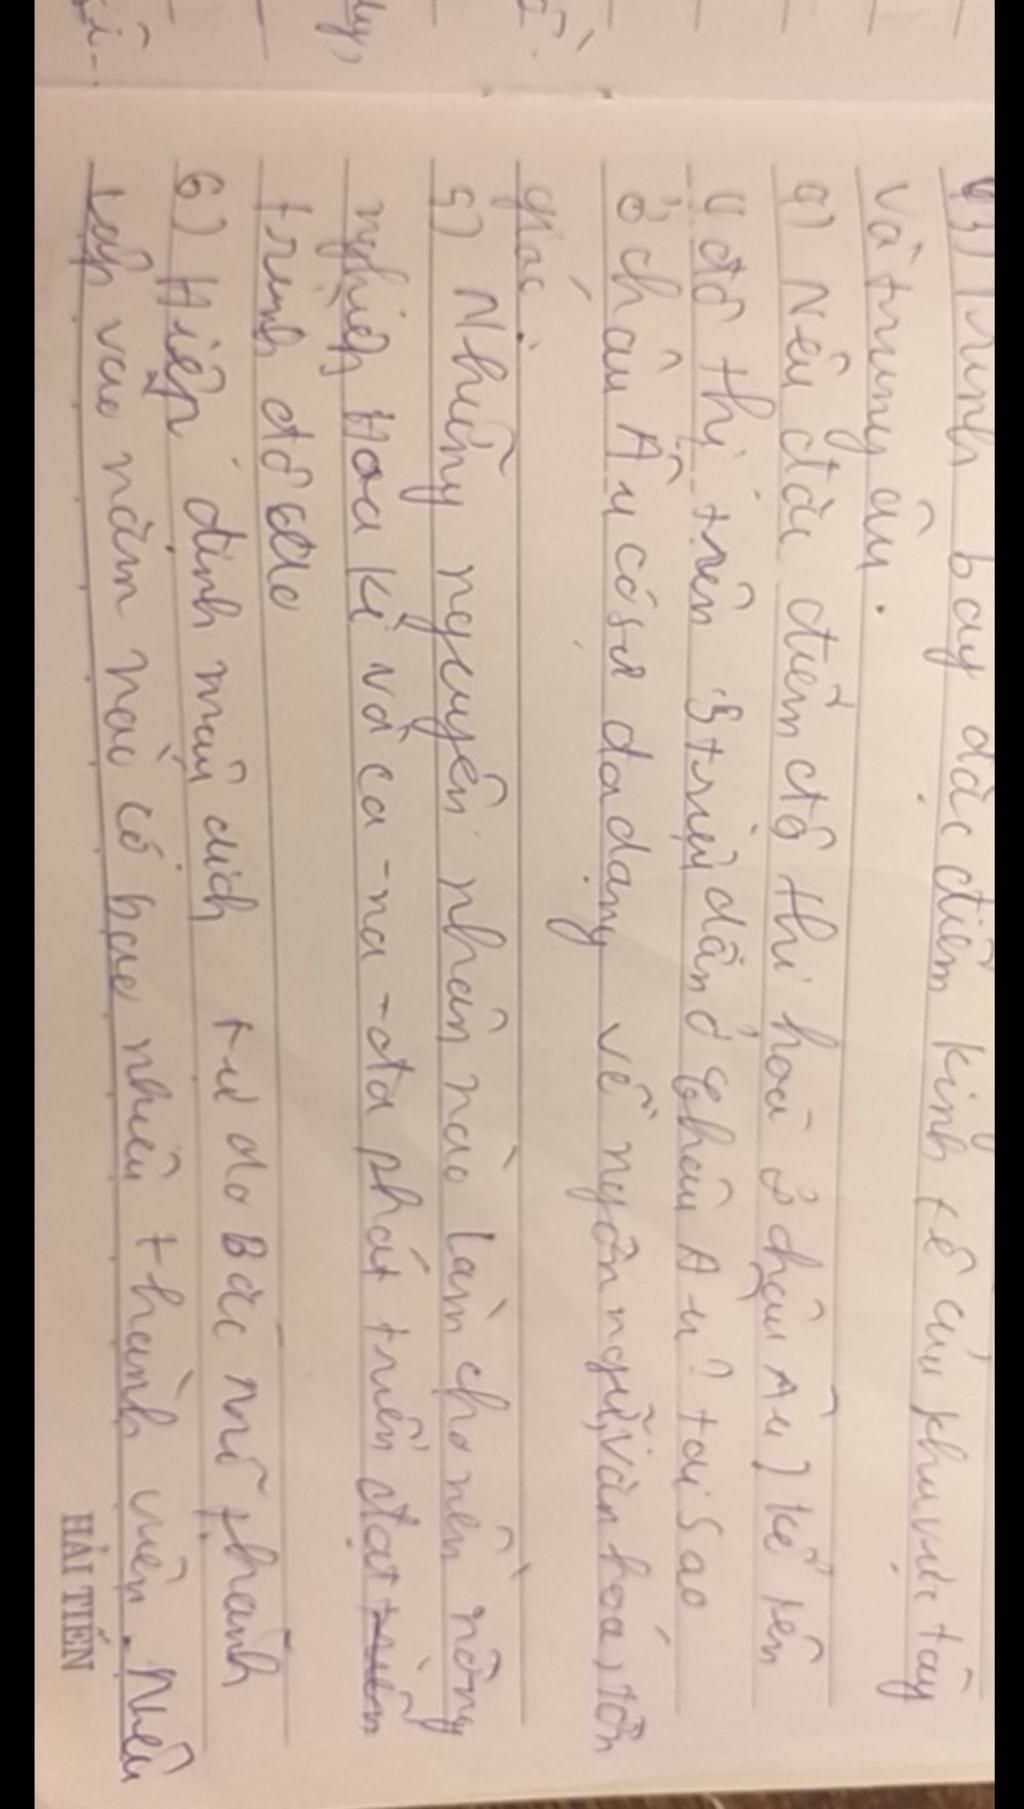 3) Trình bày đặc điểm kinh tế của khu vực tây
và trung âu.
4) Nêu đặc điểm đô thị hoá ở châu Âu] kể tên
4 đô thị trên 5 triệu dân ở châu Âu? tại sao
ở châu Âu có sự đa dạng về ngôn ngữ, văn hoá, tôn
giáo.
5) Những nguyên nhân nào làm cho nền nông
nghiệp Hoa Kì và ca-na-đa phát triển đạt
trình độ cao
6) Hiệp định mậu dịch tự do Bắc Mĩ thành
lập vào năm nào có bao nhiêu thành viên. Nêu
HẢI TIẾN